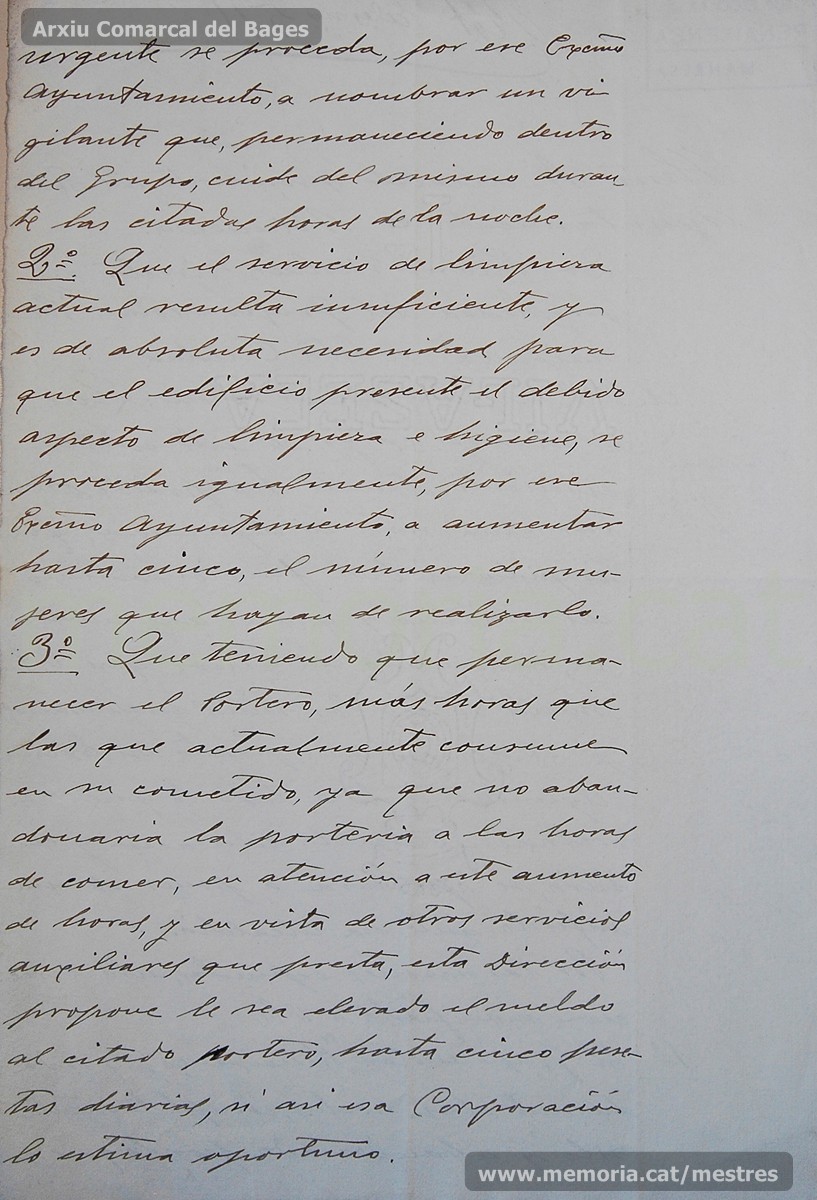 Arxiu Comarcal del Bages
urgente se proceda, por ese Excmo
Ayuntamiento, a nombrar un vi-
gilante que, permaneciendo dentro
del Grupo, cuide del mismo duran-
te las citadas horas de la noche.
2º. Que el servicio de limpieza
actual resulta insuficiente, y
es de absoluta necesidad para
que el edificio presente el debido
aspecto de limpieza e higiene, se
proceda igualmente, por ese
Excmo Ayuntamiento, a aumentar
hasta cinco, el número de mu-
jeres que hayan de realizarlo.
3º Que teniendo que perma-
necer el Portero, más horas que
las que actualmente consume
en su cometido, ya que no aban-
donaria la porteria a las horas
de comer, en atención a este aumento
de horas, y en vista de otros servicios
auxiliares que presta, esta Dirección
propone le sea elevado el sueldo
al citado portero, hasta cinco pese-
tas diarias, si asi esa Corporación
lo estima oportuno.
www.memoria.cat/mestres